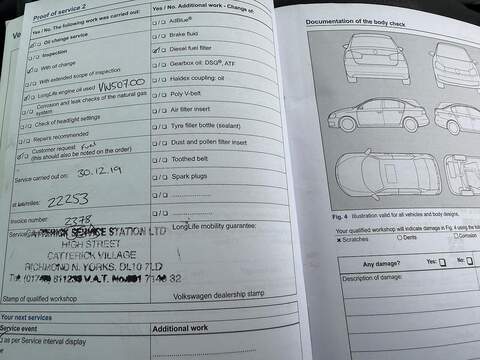 Proof of service 2
Yes / No. The following work was carried out:
Oil change service
Inspection
With oil change
With extended scope of inspection
LongLife engine oil used VW50700
Corrosion and leak checks of the natural gas system
Check of headlight settings
Repairs recommended
Customer request fuel
(this should also be noted on the order)
Service carried out on: 30.12.19
at km/miles: 22253
Invoice number 2378
Service
CATTERICK SERVICE STATION LTD
HIGH STREET
CATTERICK VILLAGE
RICHMOND N. YORKS. DL10 7LD
Stamp of qualified workshop
Yes / No. Additional work - Change of:
AdBlue®
Brake fluid
Diesel fuel filter
Gearbox oil: DSG®, ATF
Haldex coupling: oil
Poly V-belt
Air filter insert
Tyre filler bottle (sealant)
Dust and pollen filter insert
Toothed belt
Spark plugs
LongLife mobility guarantee:
Volkswagen dealership stamp
Your next services
Service event
Additional work
as per Service interval display
Documentation of the body check
Fig. 4 Illustration valid for all vehicles and body designs.
Your qualified workshop will indicate damage in Fig. 4 using the
x Scratches o Dents □ Corrosion
Any damage? Yes: No:
Description of damage: